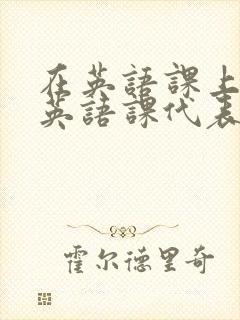 在英語課上
英語課代表
霍尔德里奇